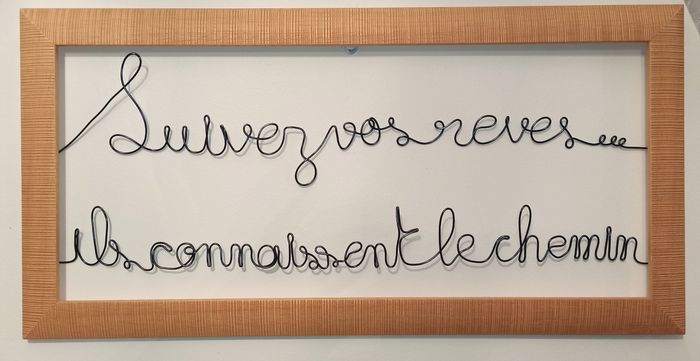 Suivez vos reves...
ils connaissent le chemin